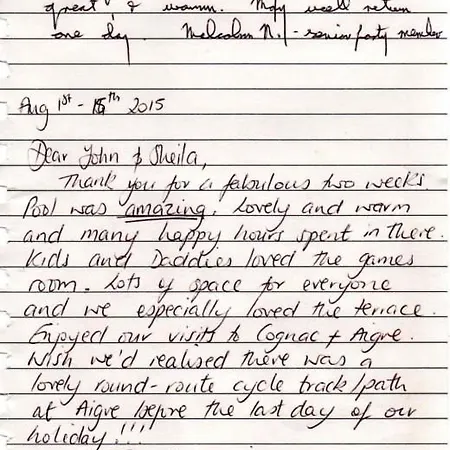 great & warm. May well return
one day. Malcolm N. - senior party member
Aug 1st - 15th 2015
Dear John & Sheila,
Thank you for a fabulous two weeks.
Pool was amazing. Lovely and warm
and many happy hours spent in there.
Kids and Daddies loved the games
room. Lots of space for everyone
and we especially loved the terrace.
Enjoyed our visits to Cognac + Aigre.
Wish we'd realised there was a
lovely round-route cycle track/path
at Aigre before the last day of our
holiday!!!